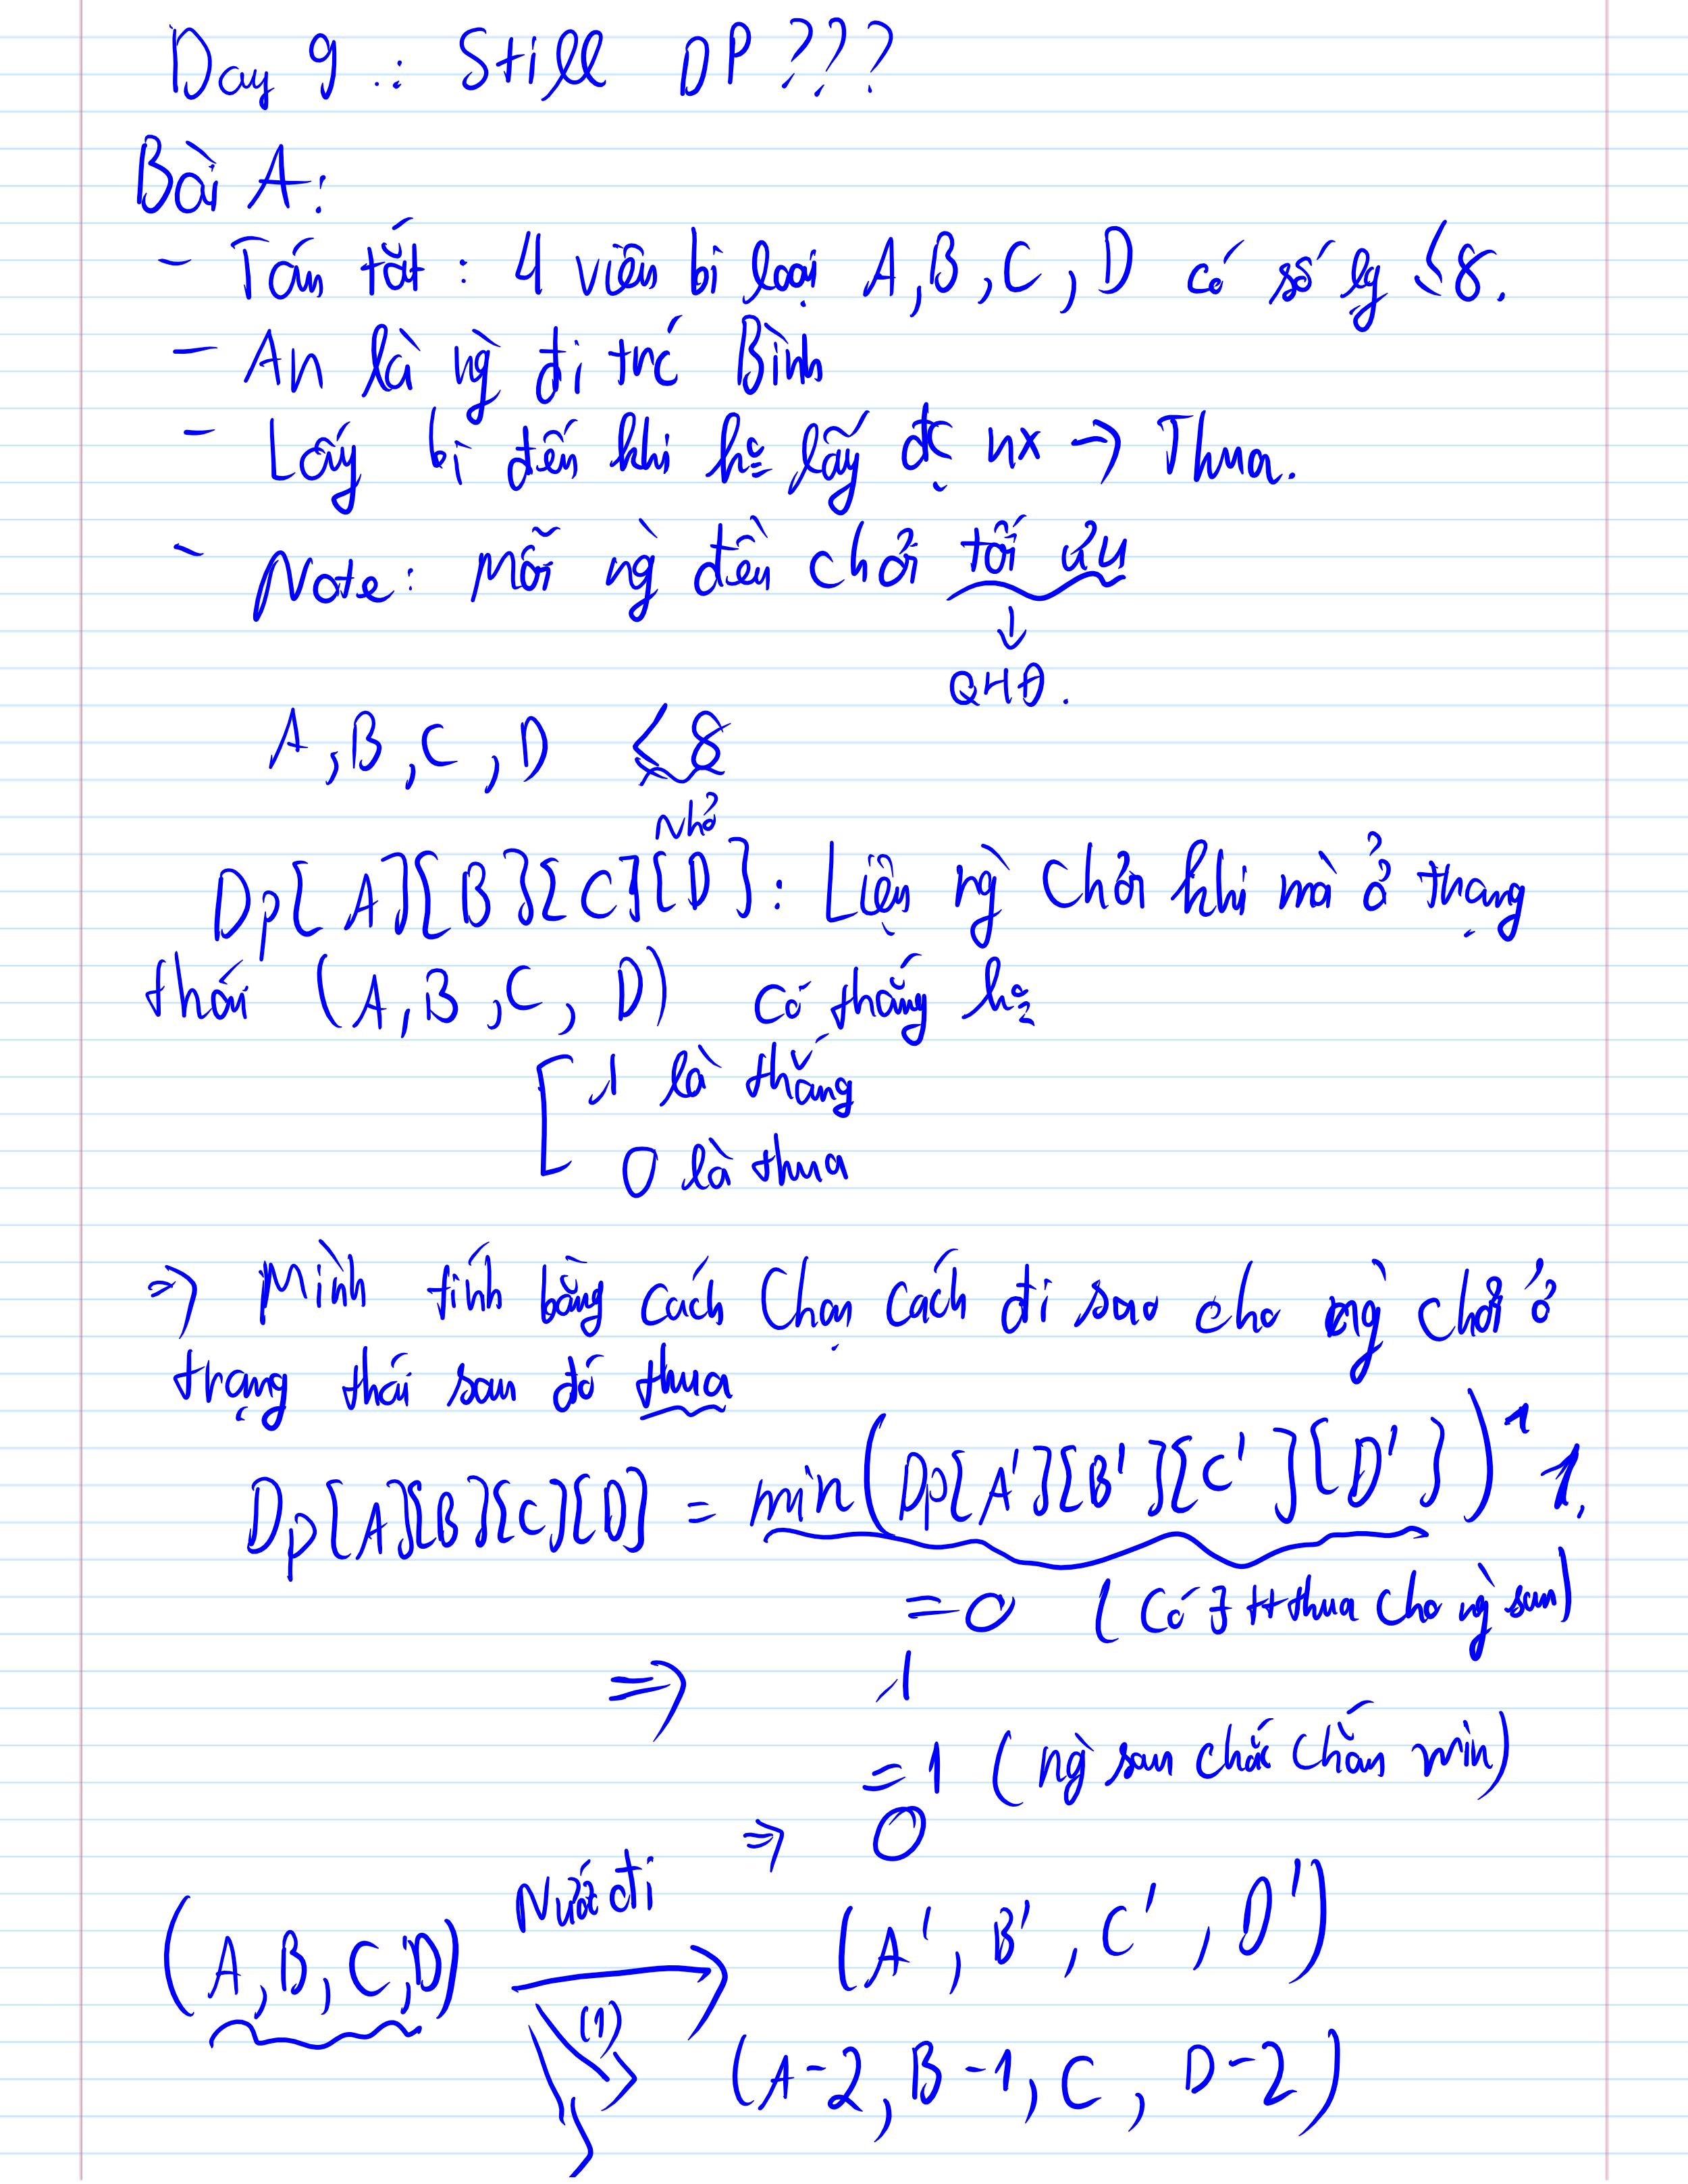 Day 9 : Still DP ???
Bài A:
- Tóm tắt : 4 viên bi loại A, B, C, D có số lg ≤ 8.
- An là ng đi trc Bình
- Lấy bi đến khi ko lấy đc nx → Thua.
- Note: mỗi ng đều chơi tối ưu
↓
QHĐ.
A, B, C, D ≤ 8
Nhỏ
Dp[A][B][C][D] : Liệu ng chơi khi mà ở trạng
thái (A, B, C, D) có thắng ko?
1 là thắng
0 là thua
⇒ Mình tính bằng cách chọn cách đi sao cho ng chơi ở
trạng thái sau đó thua
Dp[A][B][C][D] = min(Dp[A'][B'][C'][D']) ^ 1.
= 0 (có ∃ tt thua cho ng sau)
⇒ 1
= 1 (ng sau chắc chắn win)
⇒ 0
(A, B, C, D) Nước đi (A', B', C', D')
(1) (A-2, B-1, C, D-2)